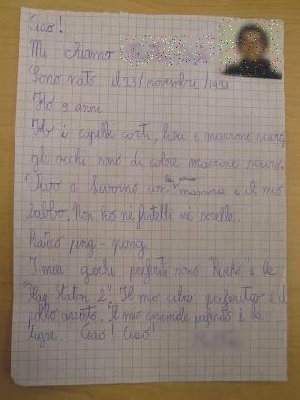 Ciao!
Mi chiamo
Sono nato il 23/novembre/1998
Ho 9 anni
Ho i capelli corti, lisci e marrone scuro,
gli occhi sono di colore marrone scuro.
Vivo a Livorno con la mamma e il mio
babbo. Non ho né fratelli né sorelle.
Pratico ping-pong.
I miei giochi preferiti sono e la
"Play Station 2". Il mio cibo preferito è il
pollo arrosto. Il mio animale preferito è la
tigre. Ciao! Ciao!